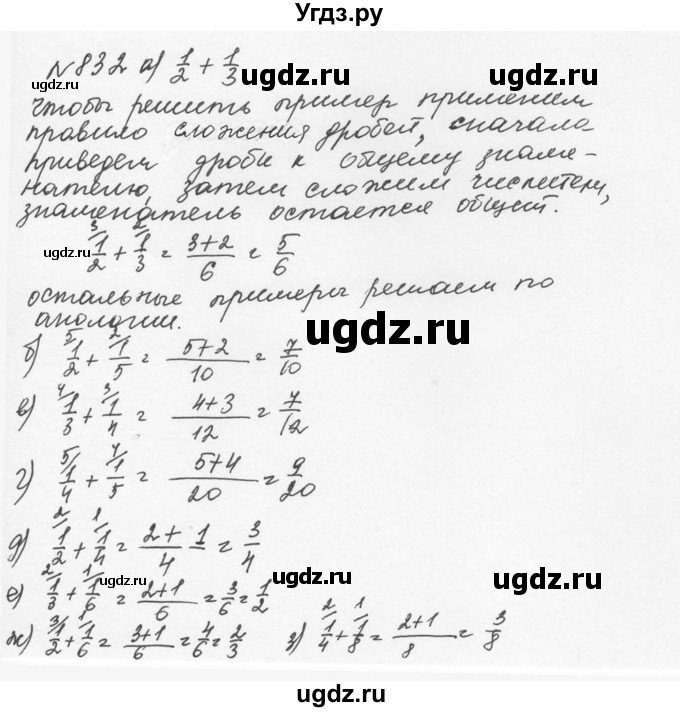 Угдз.ру
№832 а) 1/2 + 1/3
ugdz.ru ugdz.ru
Чтобы решить пример применим
правило сложения дробей, сначала
приведем дроби к общему знаме-
нателю, затем сложим числители,
знаменатель остается общий.
ugdz.ru 3/ 1/2 + 2/ 1/3 = (3+2)/6 = 5/6
остальные примеры решаем по
анологии.
ugdz.ru
б) 5/ 1/2 + 2/ 1/5 = (5+2)/10 = 7/10
в) 4/ 1/3 + 3/ 1/4 = (4+3)/12 = 7/12
г) 5/ 1/4 + 4/ 1/5 = (5+4)/20 = 9/20
ugdz.ru
д) 2/ 1/2 + 1/ 1/4 = (2+1)/4 = 3/4
ugdz.ru
е) 2/ 1/3 + 1/ 1/6 = (2+1)/6 = 3/6 = 1/2
ж) 3/ 1/2 + 1/ 1/6 = (3+1)/6 = 4/6 = 2/3 з) 2/ 1/4 + 1/ 1/8 = (2+1)/8 = 3/8
ugdz.ru